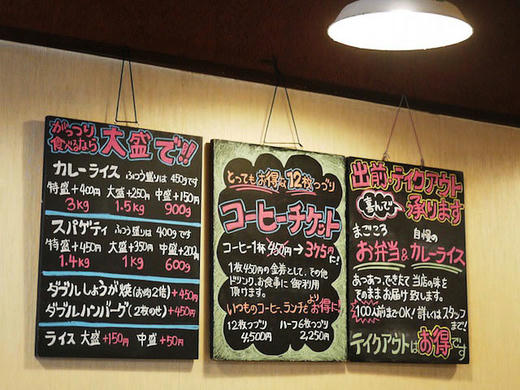 がっつり
食べるなら 大盛で!!
カレーライス ふつう盛りは 450gです
特盛+400円 大盛+250円 中盛+150円
3kg 1.5kg 900g
スパゲティ ふつう盛りは 400gです
特盛+450円 大盛+350円 中盛+200円
1.4kg 1kg 600g
ダブルしょうが焼(お肉2倍)+450
ダブルハンバーグ(2枚のせ)+450
ライス 大盛+150円 中盛+50円
とってもお得な12枚つづり
コーヒーチケット
コーヒー1杯 450円→375円に!
1枚450円の金券として、その他
ドリンク、お食事に御利用
頂けます。
いつものコーヒー、ランチをよりお得に!
12枚つづり ハーフ6枚つづり
4,500円 2,250円
出前・テイクアウト
喜んで♪ 承ります
まごころ 自慢の
お弁当&カレーライス
あつあつ、できたて 当店の味を
そのままお届け致します。
100人前までOK! 詳しくはスタッフ
まで!
テイクアウトはお得です